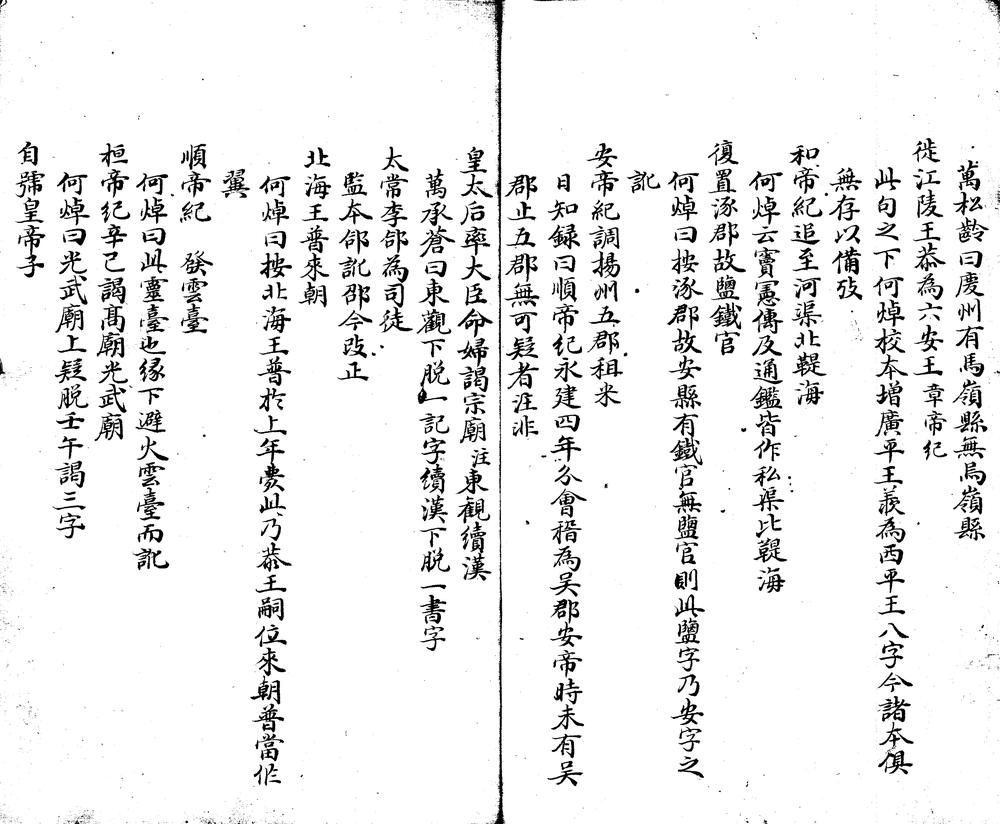 萬松齡曰慶州有馬嶺縣無烏嶺縣
徙江陵王恭為六安王章帝紀
此句之下何焯校本增廣平王羨為西平王八字今諸本俱
無存以備攷
和帝紀追至河渠北鞮海
何焯云竇憲傳及通鑑皆作私渠比鞮海
復置涿郡故鹽鐵官
何焯曰按涿郡故安縣有鐵官無鹽官則此鹽字乃安字之
訛
安帝紀調揚州五郡租米
日知録曰順帝紀永建四年分會稽為吴郡安帝時未有吴
郡止五郡無可疑者注非
皇太后率大臣命婦謁宗廟注東觀續漢
萬承蒼曰東觀下脱一記字續漢下脱一書字
太常李郃為司徒
監本郃訛邵今改正
北海王普來朝
何焯曰按北海王普於上年薨此乃恭王嗣位來朝普當作
翼
順帝紀 發雲臺
何焯曰此靈臺也緣下避火雲臺而訛
桓帝紀辛己謁髙廟光武廟
何焯曰光武廟上疑脱壬午謁三字
自號皇帝子